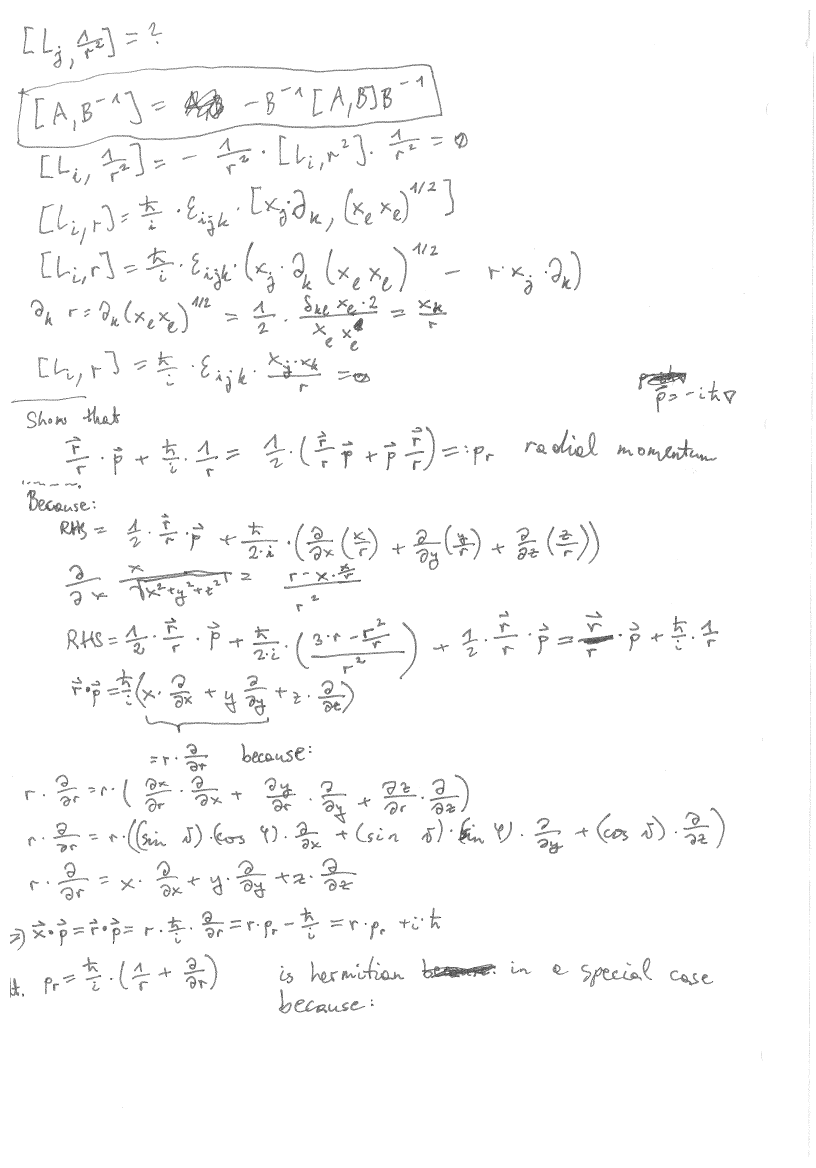 [L_j, 1/r²] = ?
[A, B⁻¹] = - B⁻¹ [A, B] B⁻¹
[L_i, 1/r²] = - 1/r² · [L_i, r²] · 1/r² = 0
[L_i, r] = ħ/i · ε_ijk · [x_j ∂_k, (x_e x_e)^1/2]
[L_i, r] = ħ/i · ε_ijk · (x_j · ∂_k (x_e x_e)^1/2 - r · x_j · ∂_k)
∂_k r = ∂_k (x_e x_e)^1/2 = 1/2 · (δ_ke x_e · 2)/(x_e x_e) = x_k/r
[L_i, r] = ħ/i · ε_ijk · (x_j · x_k)/r = 0
p⃗ = -iħ∇
Show that
r⃗/r · p⃗ + ħ/i · 1/r = 1/2 · (r⃗/r p⃗ + p⃗ r⃗/r) =: p_r radial momentum
Because:
RHS = 1/2 · r⃗/r · p⃗ + ħ/(2·i) · (∂/∂x (x/r) + ∂/∂y (y/r) + ∂/∂z (z/r))
∂/∂x x/√(x²+y²+z²) = (r - x · x/r)/r²
RHS = 1/2 · r⃗/r · p⃗ + ħ/(2·i) · ((3·r - r²/r)/r²) + 1/2 · r⃗/r · p⃗ = r⃗/r · p⃗ + ħ/i · 1/r
r⃗ · p⃗ = ħ/i (x · ∂/∂x + y ∂/∂y + z · ∂/∂z)
= r · ∂/∂r because:
r · ∂/∂r = r · (∂x/∂r · ∂/∂x + ∂y/∂r · ∂/∂y + ∂z/∂r · ∂/∂z)
r · ∂/∂r = r · ((sin ϑ) · (cos φ) · ∂/∂x + (sin ϑ) · (sin φ) · ∂/∂y + (cos ϑ) · ∂/∂z)
r · ∂/∂r = x · ∂/∂x + y · ∂/∂y + z · ∂/∂z
⇒ x⃗ · p⃗ = r⃗ · p⃗ = r · ħ/i · ∂/∂r = r · p_r - ħ/i = r · p_r + i · ħ
p_r = ħ/i · (1/r + ∂/∂r) is hermitian in a special case
because: